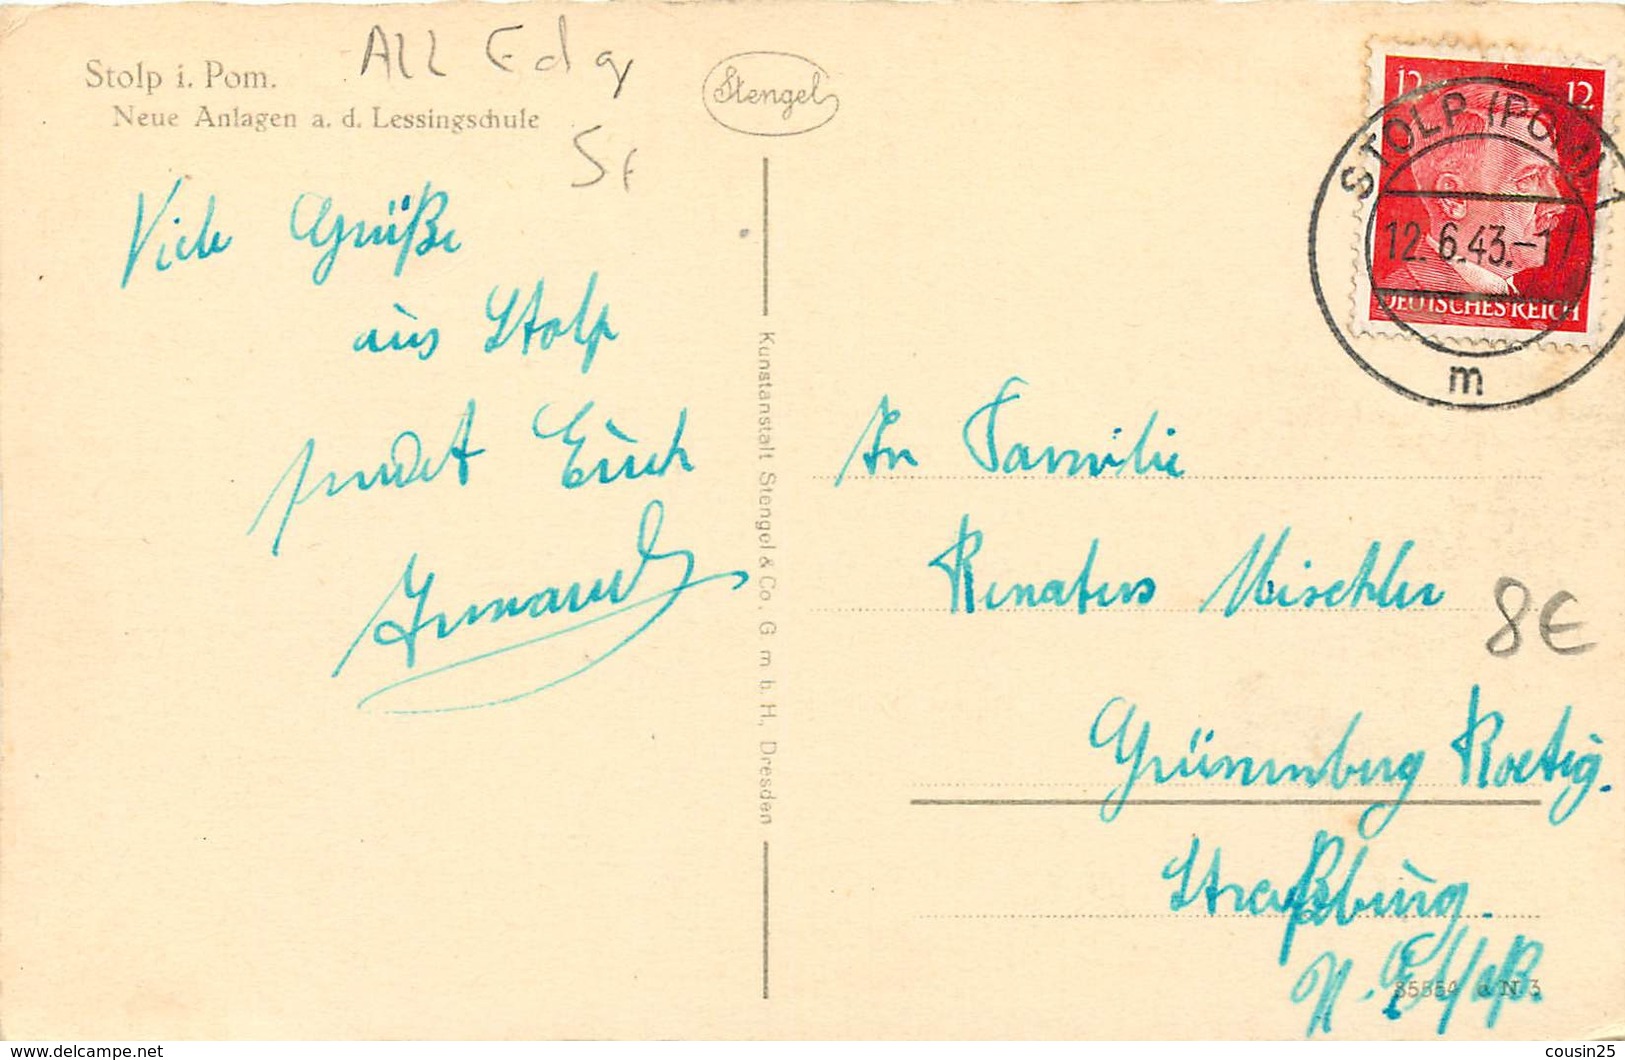 Stolp i. Pom.
Neue Anlagen a. d. Lessingschule
All
5€
Stengel
Viele Grüße
aus Stolp
sendet Euch
Armand
Kunstanstalt Stengel & Co. G. m. b. H., Dresden
12 12
DEUTSCHES REICH
STOLP (POM) 1
12.6.43.-17
m
An Familie
Renatus Mischler
Grünenberg
Straßburg.
8€
85554 N. 3
cousin25